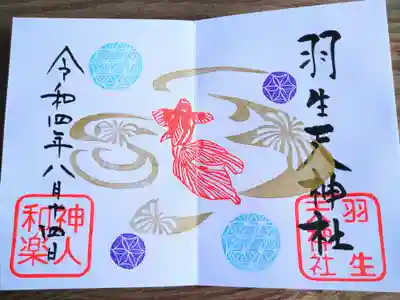 羽生天神社
羽生
天神社
令和四年八月廿四日
神人
和楽